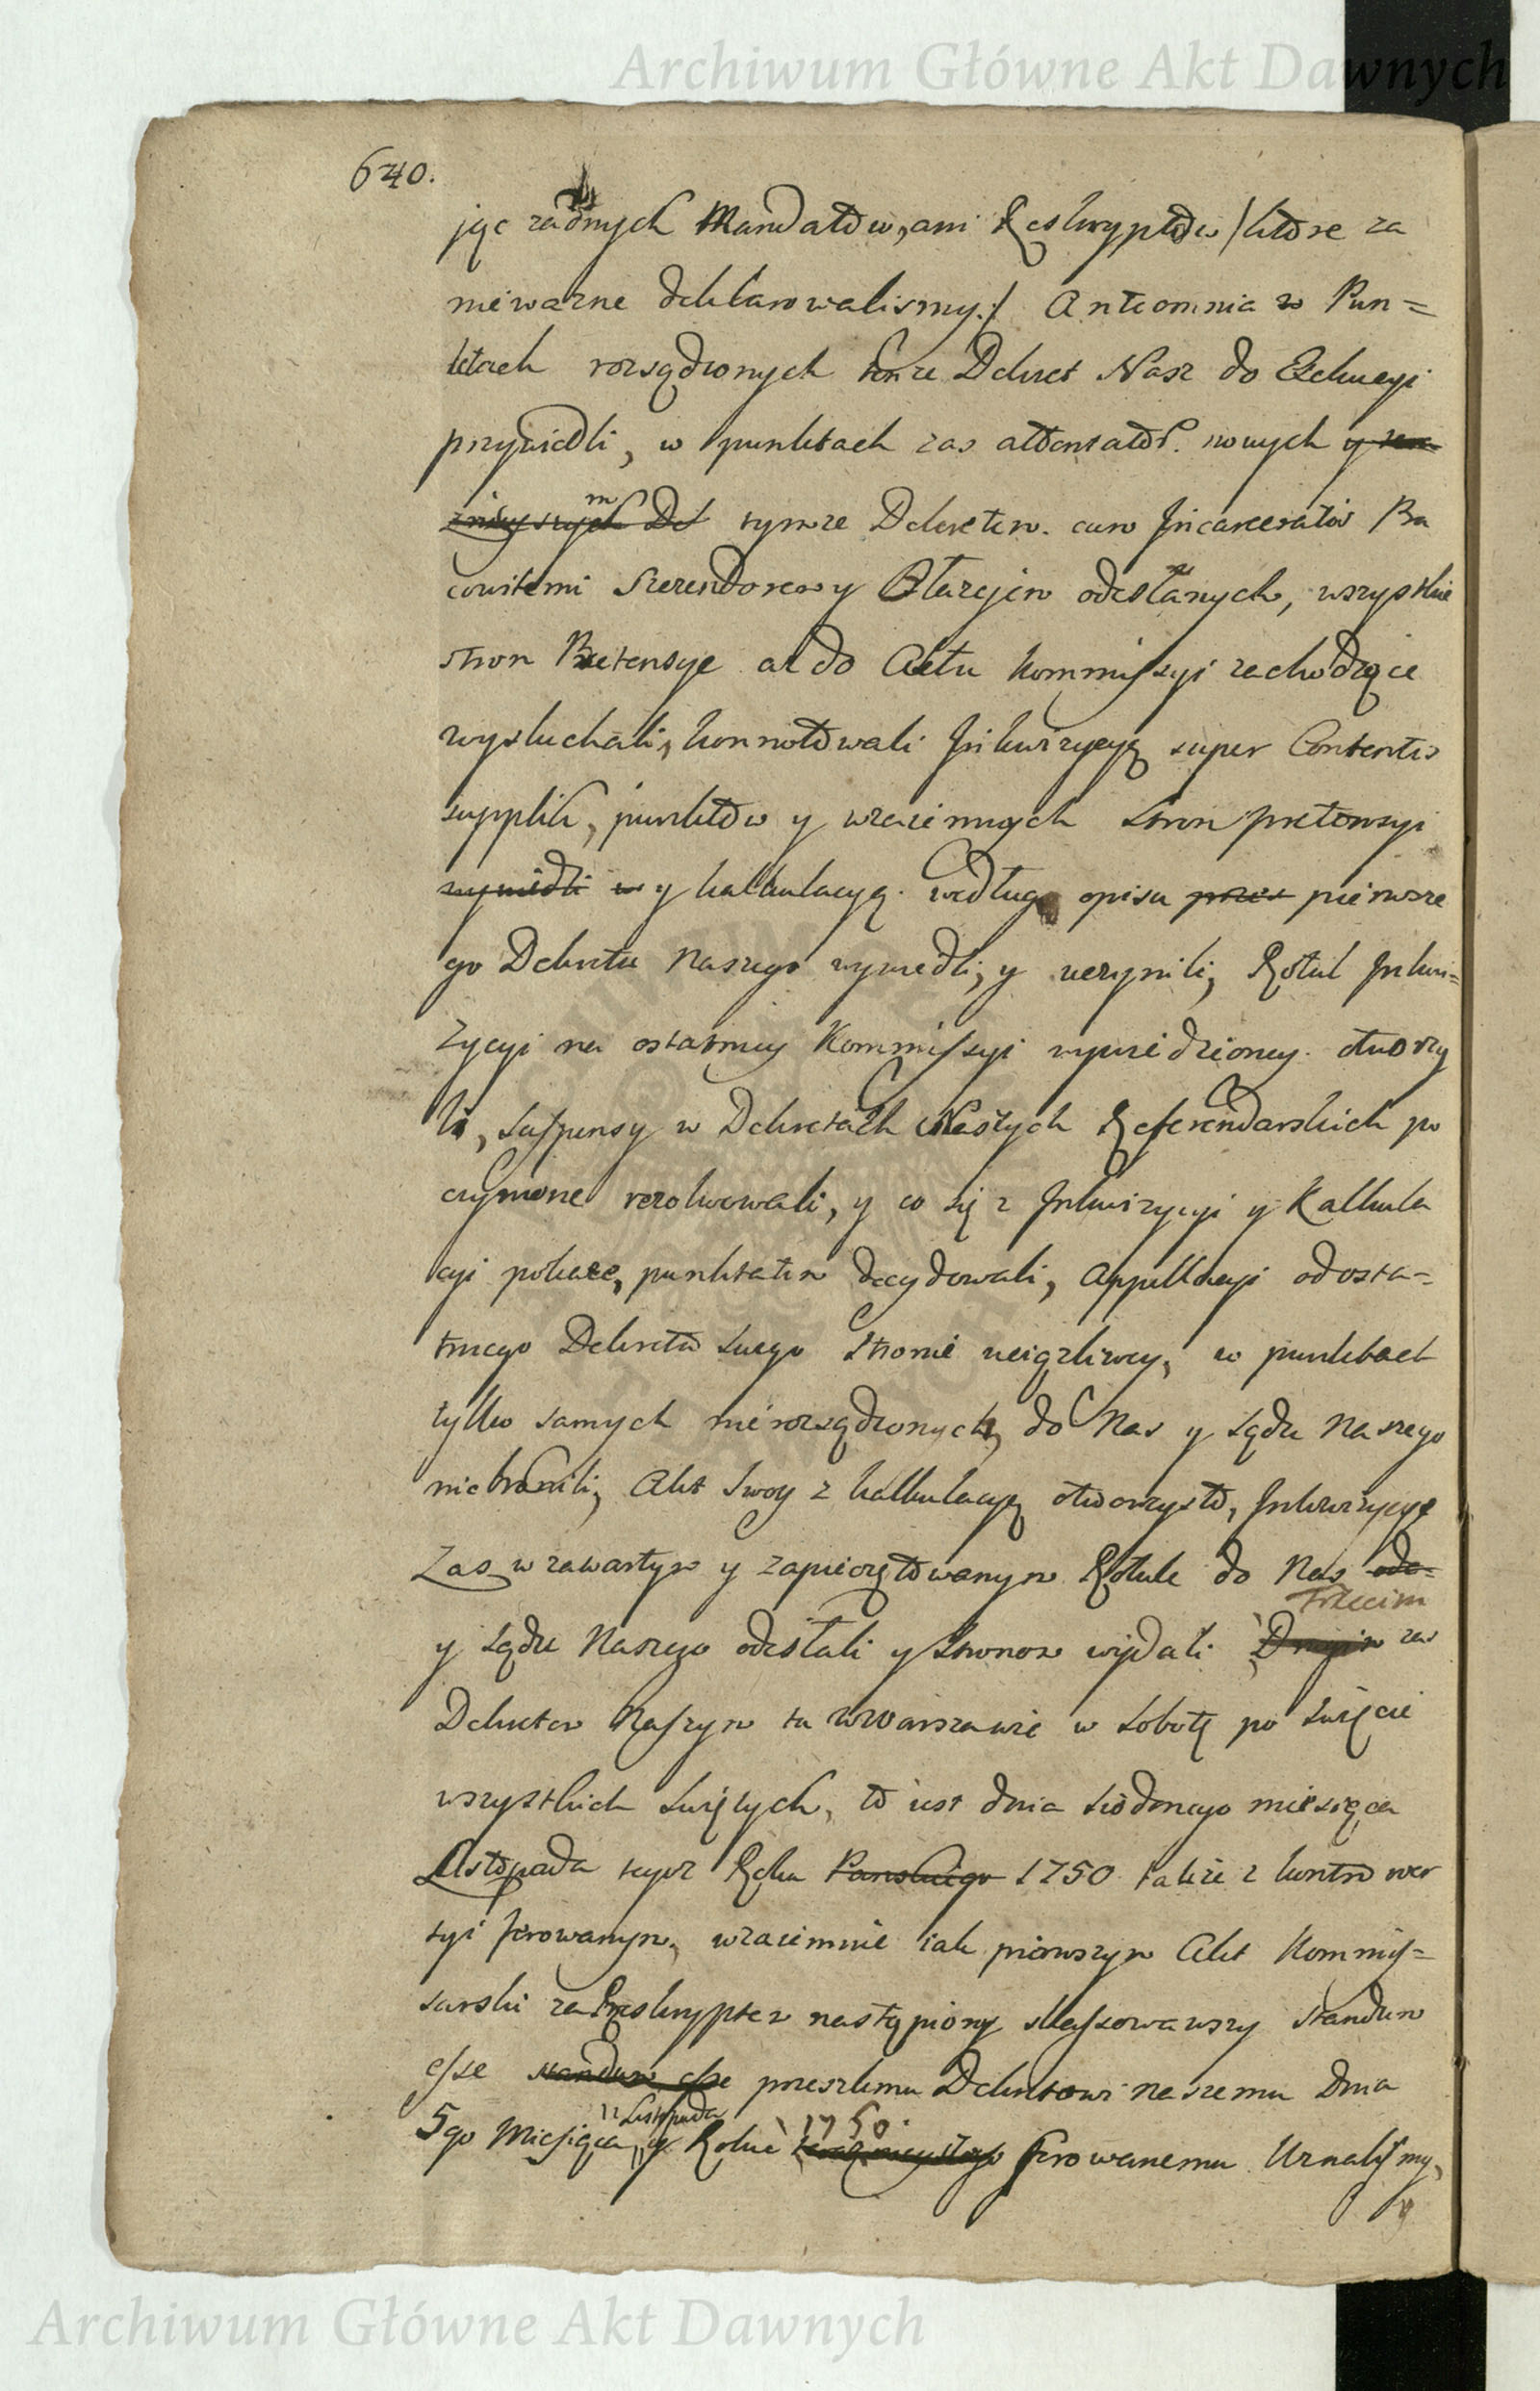 Archiwum Główne Akt Dawnych
640.
jąc żadnych Mandatów, ani Reskryptów /które za
nieważne deklarowalismy:/ Anteomnia w Pun=
ktach rozsądzonych tenze Dekret Nasz do Exekucyi
przywiedli, w punktach zas attentatór. nowych y
tymze Dekretem. cum Incarceratis Pra
cowitemi Szerendorem y Błażejem odesłanych, wszystkie
stron Pretensye aż do Aktu Kommissyi zachodzące
wysłuchali, konnotowali Inkwizycyę super Contentis
supplik, punktów y wzaiemnych stron pretensyi
wywiedli w y kalkulacyą. według opisu przez pierwsze
go Dekretu Naszego wywiedli, y uczynili, Rotuł Inkwi=
zycyi na ostatniey Kommissyi wywiedzioney. otworzy
li, suspensy w Dekretach Naszych Referendarskich po
czynione rezolwowali, y co się z Inkwizycyi y Kalkula
cyi pokaże, punktatim decydowali, Appellacyi od osta=
tniego Dekretu swego stronie uciążliwey, w punktach
tylko samych nierozsądzonych, do Nas y sądu Naszego
niebronili, Akt swoy z kalkulacyą otworzysto, Inkwizycyę
Zas w zawartym y zapieczętowanym Rotule do Nas ode=
trzecim
y sądu Naszego odesłali y stronom wydali Drugim zas
Dekretem Naszym tu w Warszawie w Sobotę po Święcie
wszystkich Swiętych, to iest dnia siódmego miesiąca
Listopada tegoż Roku Panskiego 1750 także z kontrower
syi ferowanym, wzaiemnie iak pierwszym Akt Kommis=
sarski za Reskryptem nastąpiony skassowawszy standum
esse standum esse przeszłemu Dekretowi naszemu dnia
11 Listopada 1750.
5go Miesiąca, y Roku ferowanemu Uznalismy,
y
Archiwum Główne Akt Dawnych